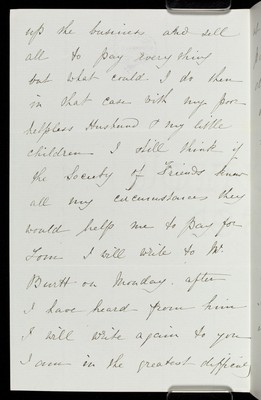 up the business and sell
all to pay every thing
but what could I do then
in that case with my poor
helpless Husband & my little
children I still think if
the Society of Friends knew
all my circumstances they
would help me to pay for
Tom I will write to Mr.
Burtt on Monday. after
I have heard from him
I will write again to you
I am in the greatest difficulty